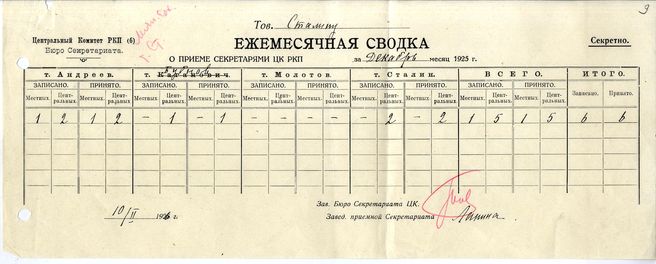 3
Тов. Сталину
Центральный Комитет РКП (б)
Бюро Секретариата.
ЕЖЕМЕСЯЧНАЯ СВОДКА
Секретно.
О ПРИЕМЕ СЕКРЕТАРЯМИ ЦК РКП за Декабрь месяц 1925 г.
т. Андреев. т. Каганович. Бубнов т. Молотов. т. Сталин. ВСЕГО. ИТОГО.
ЗАПИСАНО. ПРИНЯТО. ЗАПИСАНО. ПРИНЯТО. ЗАПИСАНО. ПРИНЯТО. ЗАПИСАНО. ПРИНЯТО. ЗАПИСАНО. ПРИНЯТО. Записано. Принято.
Местных Центральных. Местных Центральных. Местных Центральных. Местных Центральных. Местных Центральных. Местных Центральных. Местных Центральных. Местных Центральных. Местных Центральных. Местных Центральных.
1 2 1 2 - 1 - 1 - 2 - 2 1 5 1 5 6 6
Зав. Бюро Секретариата ЦК.
10/II 1926 г. Завед. приемной Секретариата Лапина